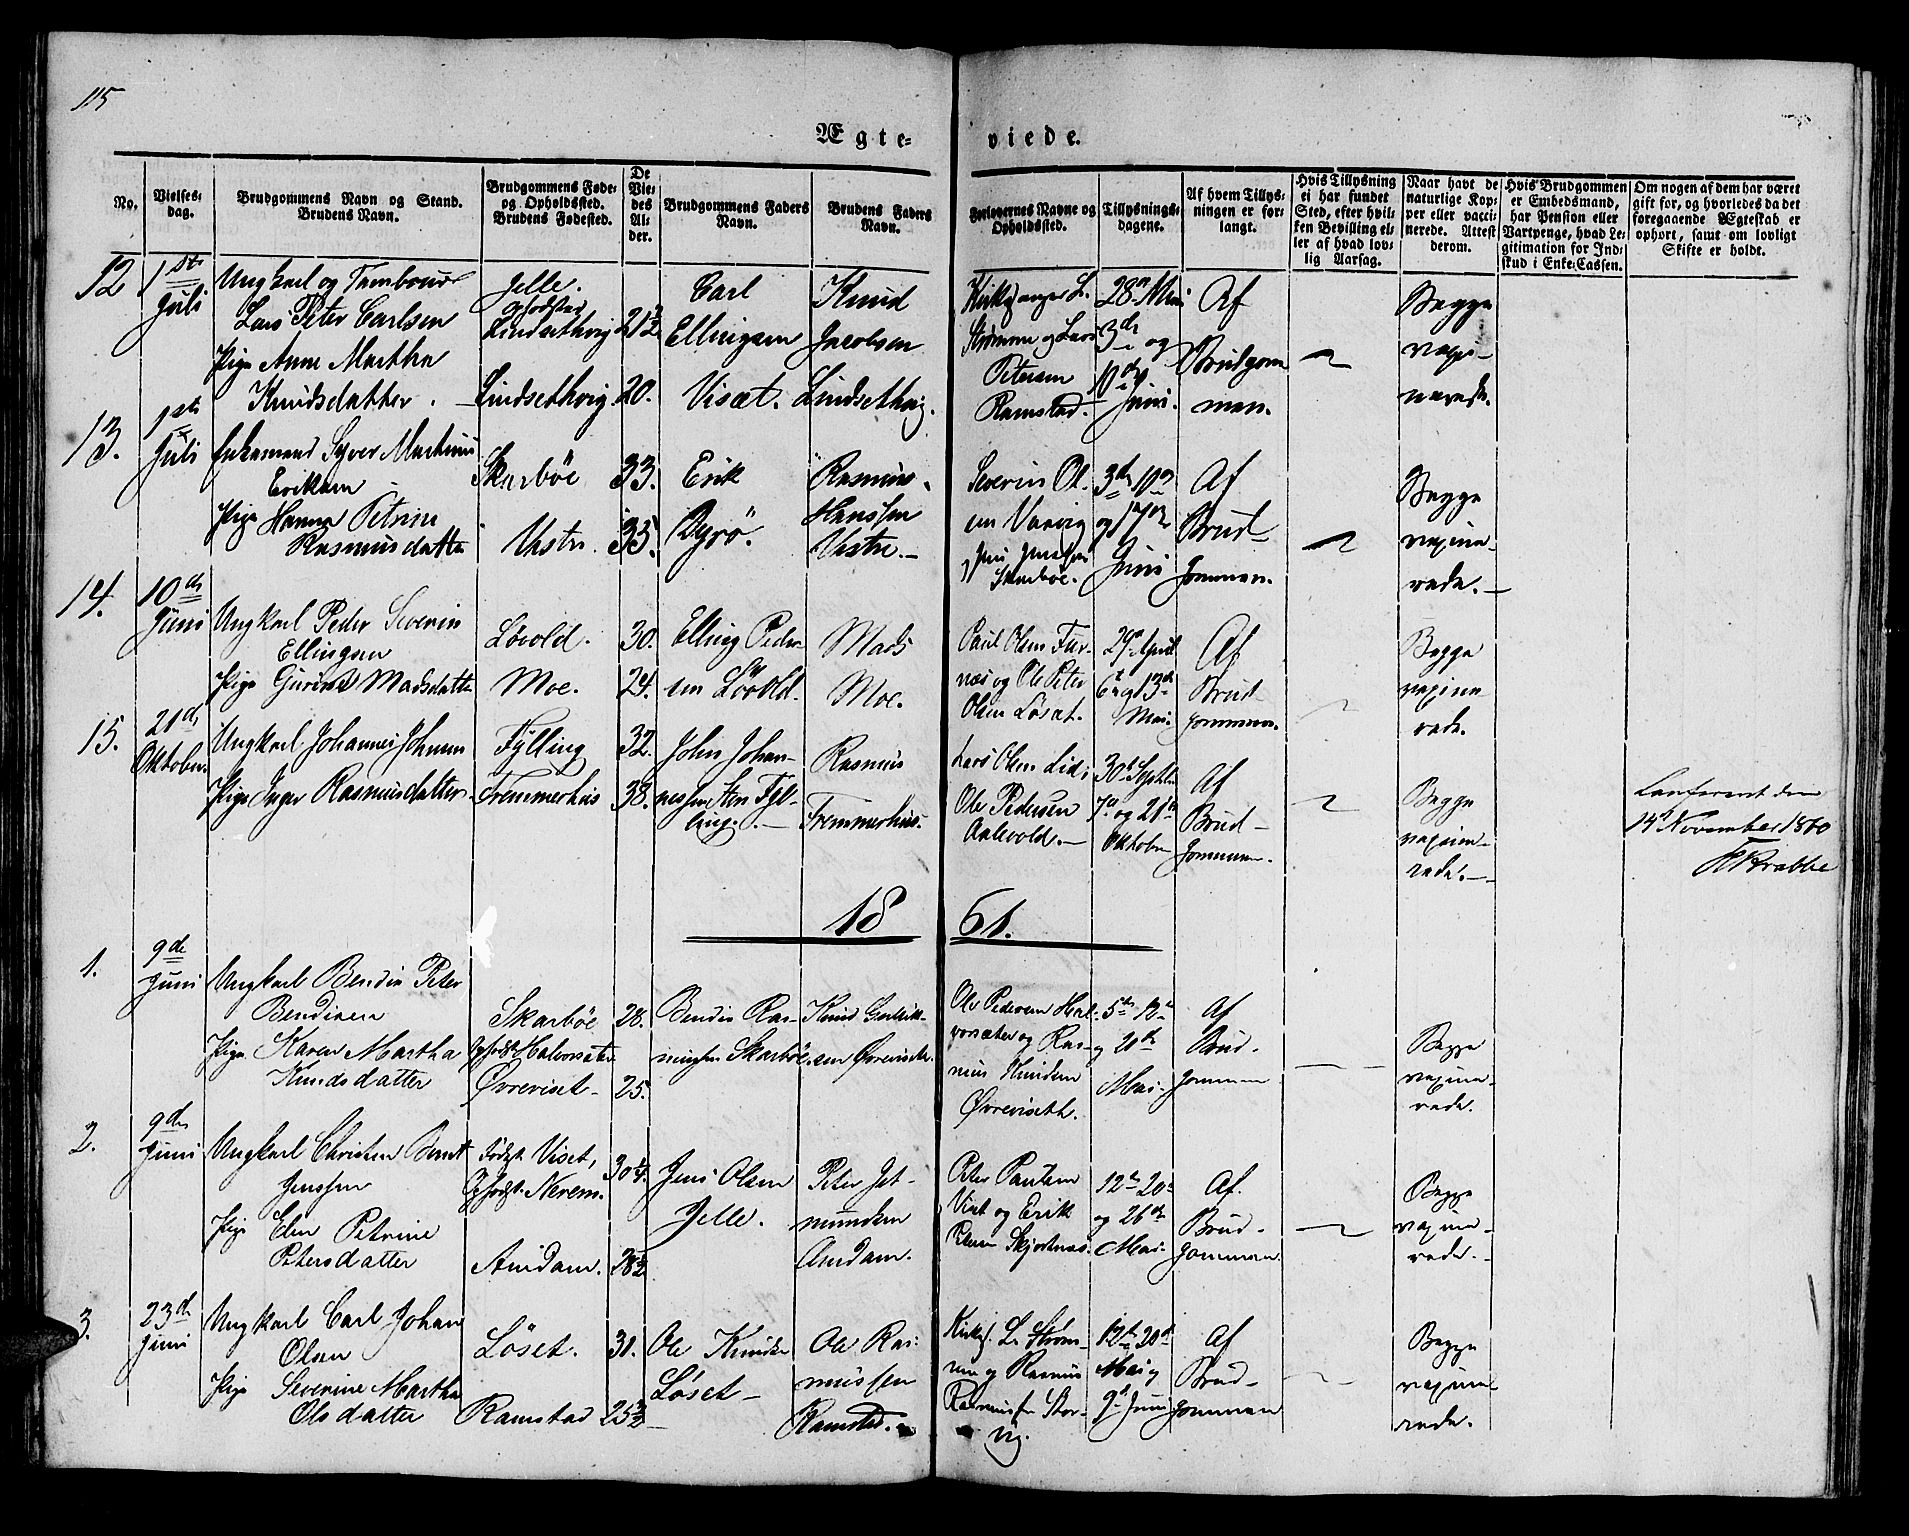 115
Ægte-
viede.
No.
Vielses-
dag.
Brudgommens Navn og Stand.
Brudens Navn.
Brudgommens Føde-
og Opholdssted.
Brudens Fødested.
De
Vie-
des
Al-
der.
Brudgommens Faders
Navn.
Brudens Faders
Navn.
Forlovernes Navne og
Opholdssted.
Tillysnings-
dagene.
Af hvem Tillys-
ningen er for-
langt.
Hvis Tillysning
ei har fundet
Sted, efter hvil-
ken Bevilling el-
ler af hvad lov-
lig Aarsag.
Naar havt de
naturlige Kop-
per eller vacci-
nerede. Attest
derom.
Hvis Brudgommen
er Embedsmand,
har Pension eller
Vartpenge, hvad Le-
gitimation for Ind-
skud i Enke-Cassen.
Om nogen af dem har været
gift for, og hvorledes da det
foregaaende Ægteskab er
ophort, samt om lovligt
Skifte er holdt.
12
1st
Juli
Ungkarl og Tambour
Lars Peter Carlsen
Pige Anne Martha
Knudsdatter.
Jelle.
Opfødsted
Lindsethvig
Lindsethvig
21½
20.
Carl
Ellingsen
Viset.
Knud
Jacobsen
Lindsethvig.
Kirkesanger L.
Strømme og Lars
Petersen
Ramstad.
28de Mai
3de og
10de
Juni.
Af
Brudgom
men.
Begge
vaxi-
nerede.
13.
1ste
Juli
Enkemand Syver Martinus
Eriksen
Pige Hanna Petrine
Rasmusdatter
Skarbøe
Vestre.
33.
35.
Erik
Dyrö.
Rasmus
Hanssen
Vestre.
Severin Ol-
sen Varvig
og Jens Jenssen
Skarbøe.
3de 10de
og 17de
Juni
Af
Brud
gommen.
Begge
vaxine-
rede.
14.
10de
Juni
Ungkarl Peder Severin
Ellingsen
Pige Gurine Madsdatter
Løvold.
Moe.
30.
24.
Elling Peder-
sen Lövold.
Mads
Moe.
Paul Olsen Fur-
næs og Ole Peter
Olsen Løset.
29de April
6te og 13de
Mai.
Af
Brud
gommen.
Begge
vaxine
rede.
15.
21de
Oktober
Ungkarl Johannes Johnsen
Pige Inger Rasmusdatter
Fylling
Fremmerhus
32.
38.
John Johan-
nessen Fyl-
ling.
Rasmus
Fremmerhus.
Lars Olsen Lid i
Ole Pedersen
Aalevold.
30te Septbr
7de og 21de
Oktober
Af
Brud-
gommen.
Begge
vaxine-
rede.
Confereret den
14de November 1860
Krabbe
18 61.
1.
9de
Juni
Ungkarl Bendix Peter
Bendixen
Pige Karen Martha
Knudsdatter
Skarbøe
Opfødst Halvorsæter
Øvreviset
28.
25.
Bendix Ras-
mussen Skarbøe.
Knud
sen Øvreviset.
Ole Pedersen Hal-
vorsæter og Ras-
mus Knudsen
Øvreviseth.
5te 12te
og 20de
Mai.
Af
Brud-
gommen
Begge
vaxine-
rede.
2.
9de
Juni
Ungkarl Christen Bernt
Jenssen
Pige Elen Petrine
Petersdatter
Født Viset,
Opfødst. Nerem.
Amdam.
30¼.
28½
Jens Olsen
Jelle.
Peter Jet-
mundsen
Amdam.
Peter Paulsen
Viset og Erik
Skjortnæs.
12te 20de
og 26de
Mai.
Af.
Brud-
gommen
Begge
vaxine-
rede.
3.
23de
Juni
Ungkarl Carl Johan
Olsen
Pige Severine Martha
Olsdatter
Løset.
Ramstad
31.
25½
Ole Knudsen
Løset
Ole Ras-
mussen
Ramstad.
Kirkes. L. Strøm-
me og Rasmus
Rasmussen Stor-
vig.
12te 20de
Mai og
9de Juni
Af
Brud-
gommen
Begge
vaxine-
rede.